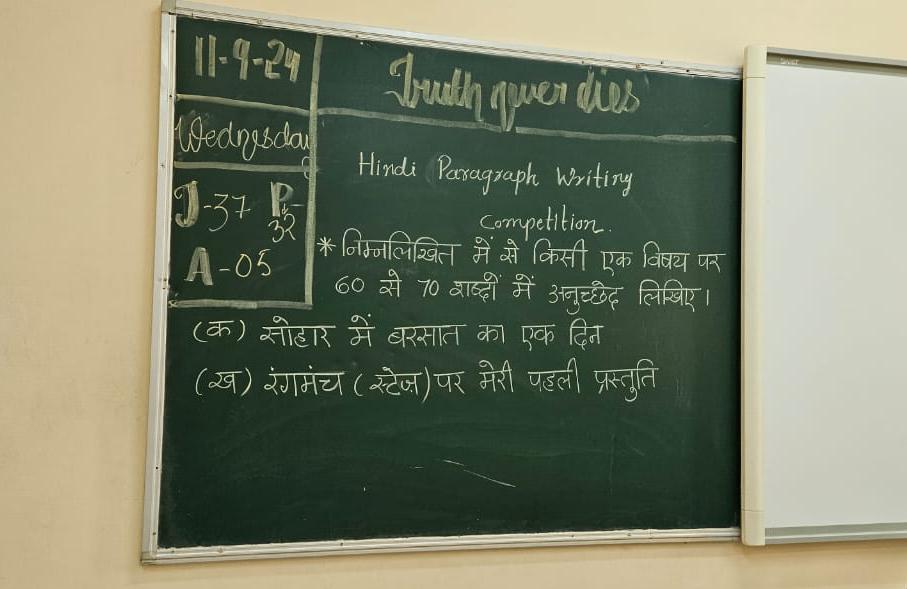 11-9-24
Truth never dies
Wednesday
J-37 P-32
A-05
Hindi Paragraph Writing
Competition.
* निम्नलिखित में से किसी एक विषय पर
60 से 70 शब्दों में अनुच्छेद लिखिए।
(क) सोहार में बरसात का एक दिन
(ख) रंगमंच (स्टेज) पर मेरी पहली प्रस्तुति